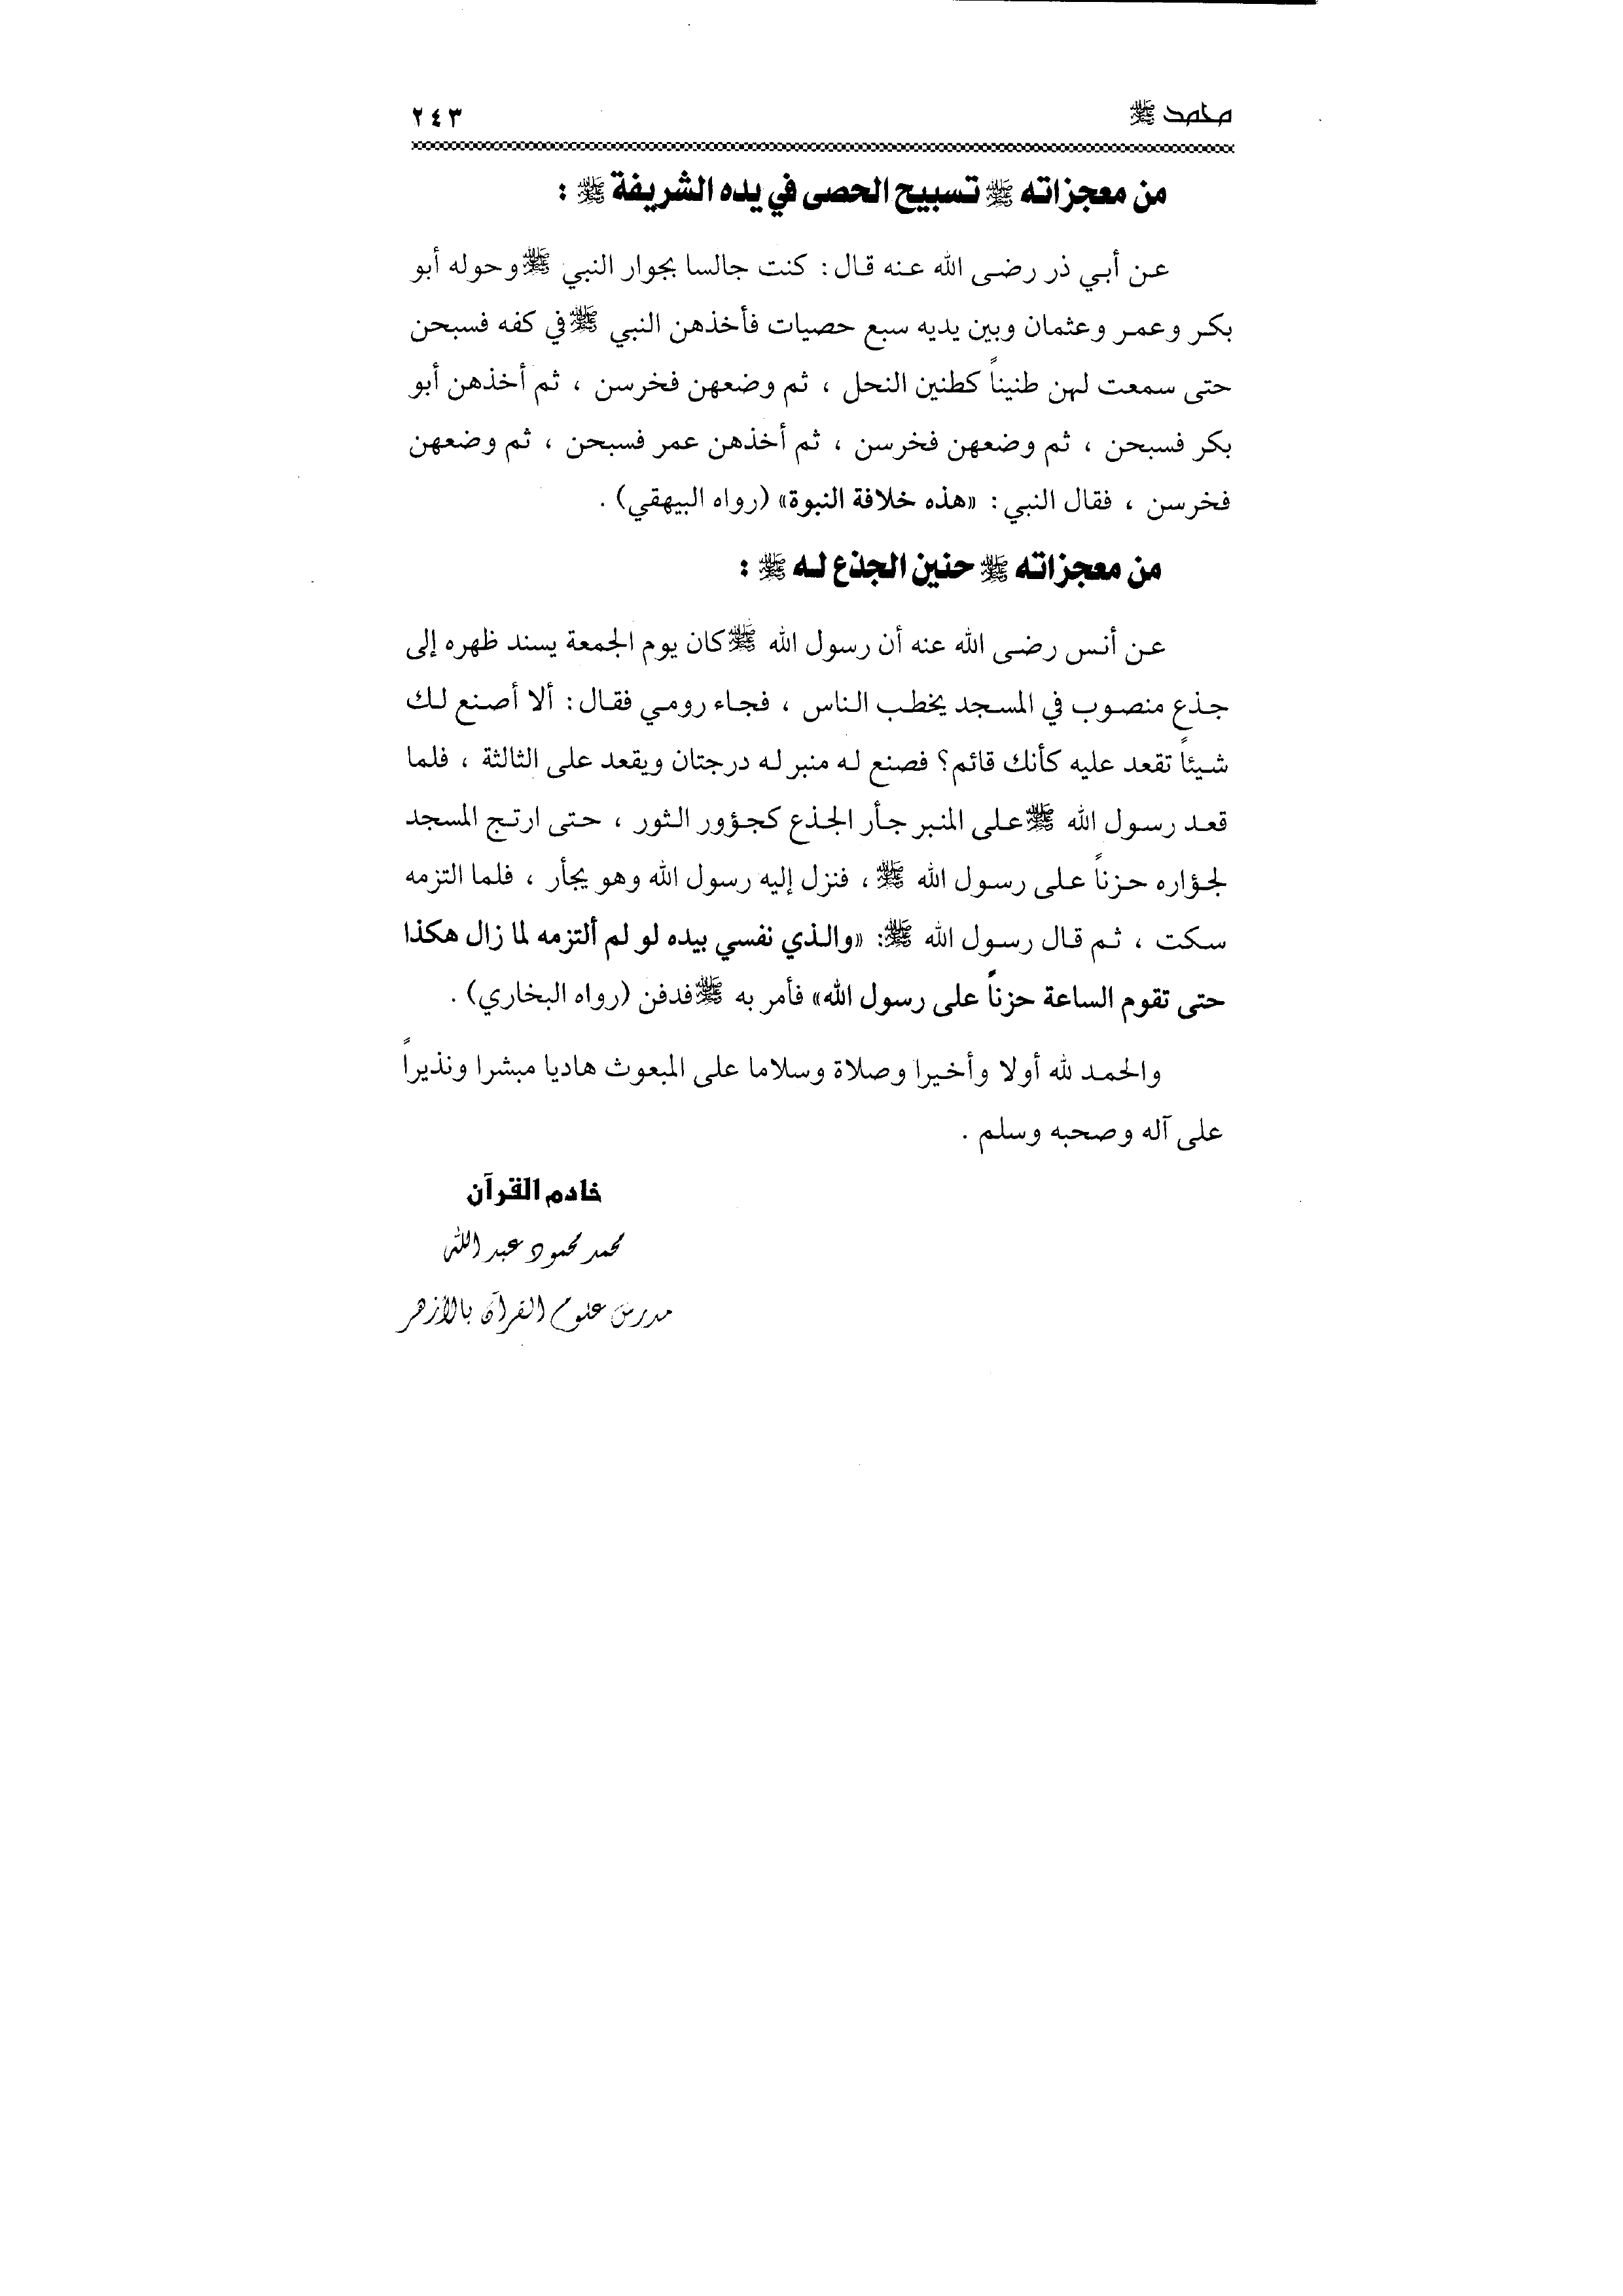 محمد ﷺ ٢٤٣
من معجزاته ﷺ تسبيح الحصى في يده الشريفة ﷺ :
عن أبي ذر رضى الله عنه قال : كنت جالسا بجوار النبي ﷺ وحوله أبو
بكر وعمر وعثمان وبين يديه سبع حصيات فأخذهن النبي ﷺ في كفه فسبحن
حتى سمعت لهن طنيناً كطنين النحل ، ثم وضعهن فخرسن ، ثم أخذهن أبو
بكر فسبحن ، ثم وضعهن فخرسن ، ثم أخذهن عمر فسبحن ، ثم وضعهن
فخرسن ، فقال النبي : «هذه خلافة النبوة» (رواه البيهقي) .
من معجزاته ﷺ حنين الجذع له ﷺ :
عن أنس رضى الله عنه أن رسول الله ﷺ كان يوم الجمعة يسند ظهره إلى
جذع منصوب في المسجد يخطب الناس ، فجاء رومي فقال : ألا أصنع لك
شيئاً تقعد عليه كأنك قائم؟ فصنع له منبر له درجتان ويقعد على الثالثة ، فلما
قعد رسول الله ﷺ على المنبر جأر الجذع كجؤور الثور ، حتى ارتج المسجد
لجؤاره حزناً على رسول الله ﷺ ، فنزل إليه رسول الله وهو يجأر ، فلما التزمه
سكت ، ثم قال رسول الله ﷺ: «والذي نفسي بيده لو لم ألتزمه لما زال هكذا
حتى تقوم الساعة حزناً على رسول الله» فأمر به ﷺ فدفن (رواه البخاري) .
والحمد لله أولا وأخيرا وصلاة وسلاما على المبعوث هاديا مبشرا ونذيراً
على آله وصحبه وسلم .
خادم القرآن
محمد محمود عبد الله
مدرس علوم القرآن بالأزهر